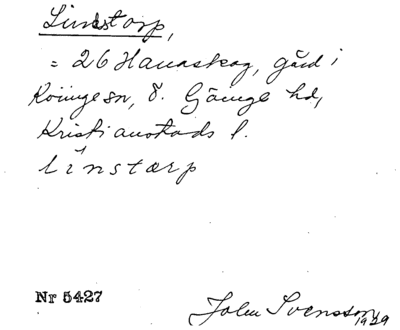 Lindstorp,
= 26 Hanaskog, gård i
Köinge sn, Ö. Göinge hd,
Kristianstads l.
línstærp
Nr 5427
John Svensson
1929